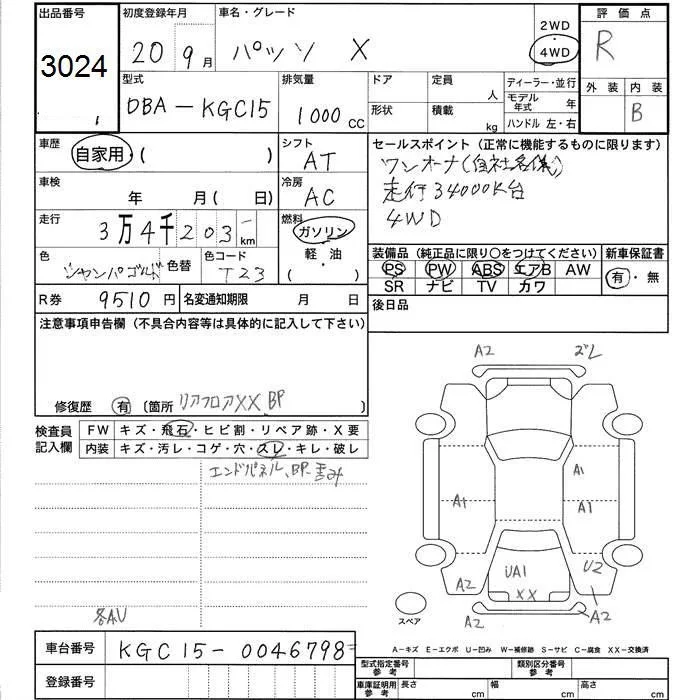 出品番号 初度登録年月 車名・グレード 2WD 評価点
3024 20 9月 パッソ X 4WD R
型式 排気量 ドア 定員 人 ディーラー・並行 外装 内装
DBA-KGC15 1000 CC 形状 積載 kg モデル年式 年 B
ハンドル 左・右
車歴 自家用・( ) シフト AT セールスポイント (正常に機能するものに限ります)
ワンオーナ(自社名義)
車検 年 月( 日) 冷房 AC 走行34000K台
走行 3万4千203 km 燃料 ガソリン 4WD
軽・油
( )
色 シャンパゴルド 色替 色コード T23 装備品 (純正品に限り〇をつけてください) 新車保証書
PS PW ABS エアB AW 有・無
SR ナビ TV カワ
R券 9510円 名変通知期限 月 日 後日品
注意事項申告欄 (不具合内容等は具体的に記入して下さい)
修復歴 有 〔箇所 リアフロアXX BP 〕
検査員記入欄 FW キズ・飛石・ヒビ割・リペア跡・X要
内装 キズ・汚レ・コゲ・穴・スレ・キレ・破レ
エンドパネル、BP 歪み
各AU
A2 ズレ
A1 A1 A1
A2 UA1 XX U2
A2 A2
スペア
A-キズ E-エクボ U-凹み W-補修跡 S-サビ C-腐食 XX-交換済
車台番号 KGC15-0046798
登録番号
型式指定番号 参考 類別区分番号 参考
車庫証明用 参考 長さ cm 幅 cm 高さ cm